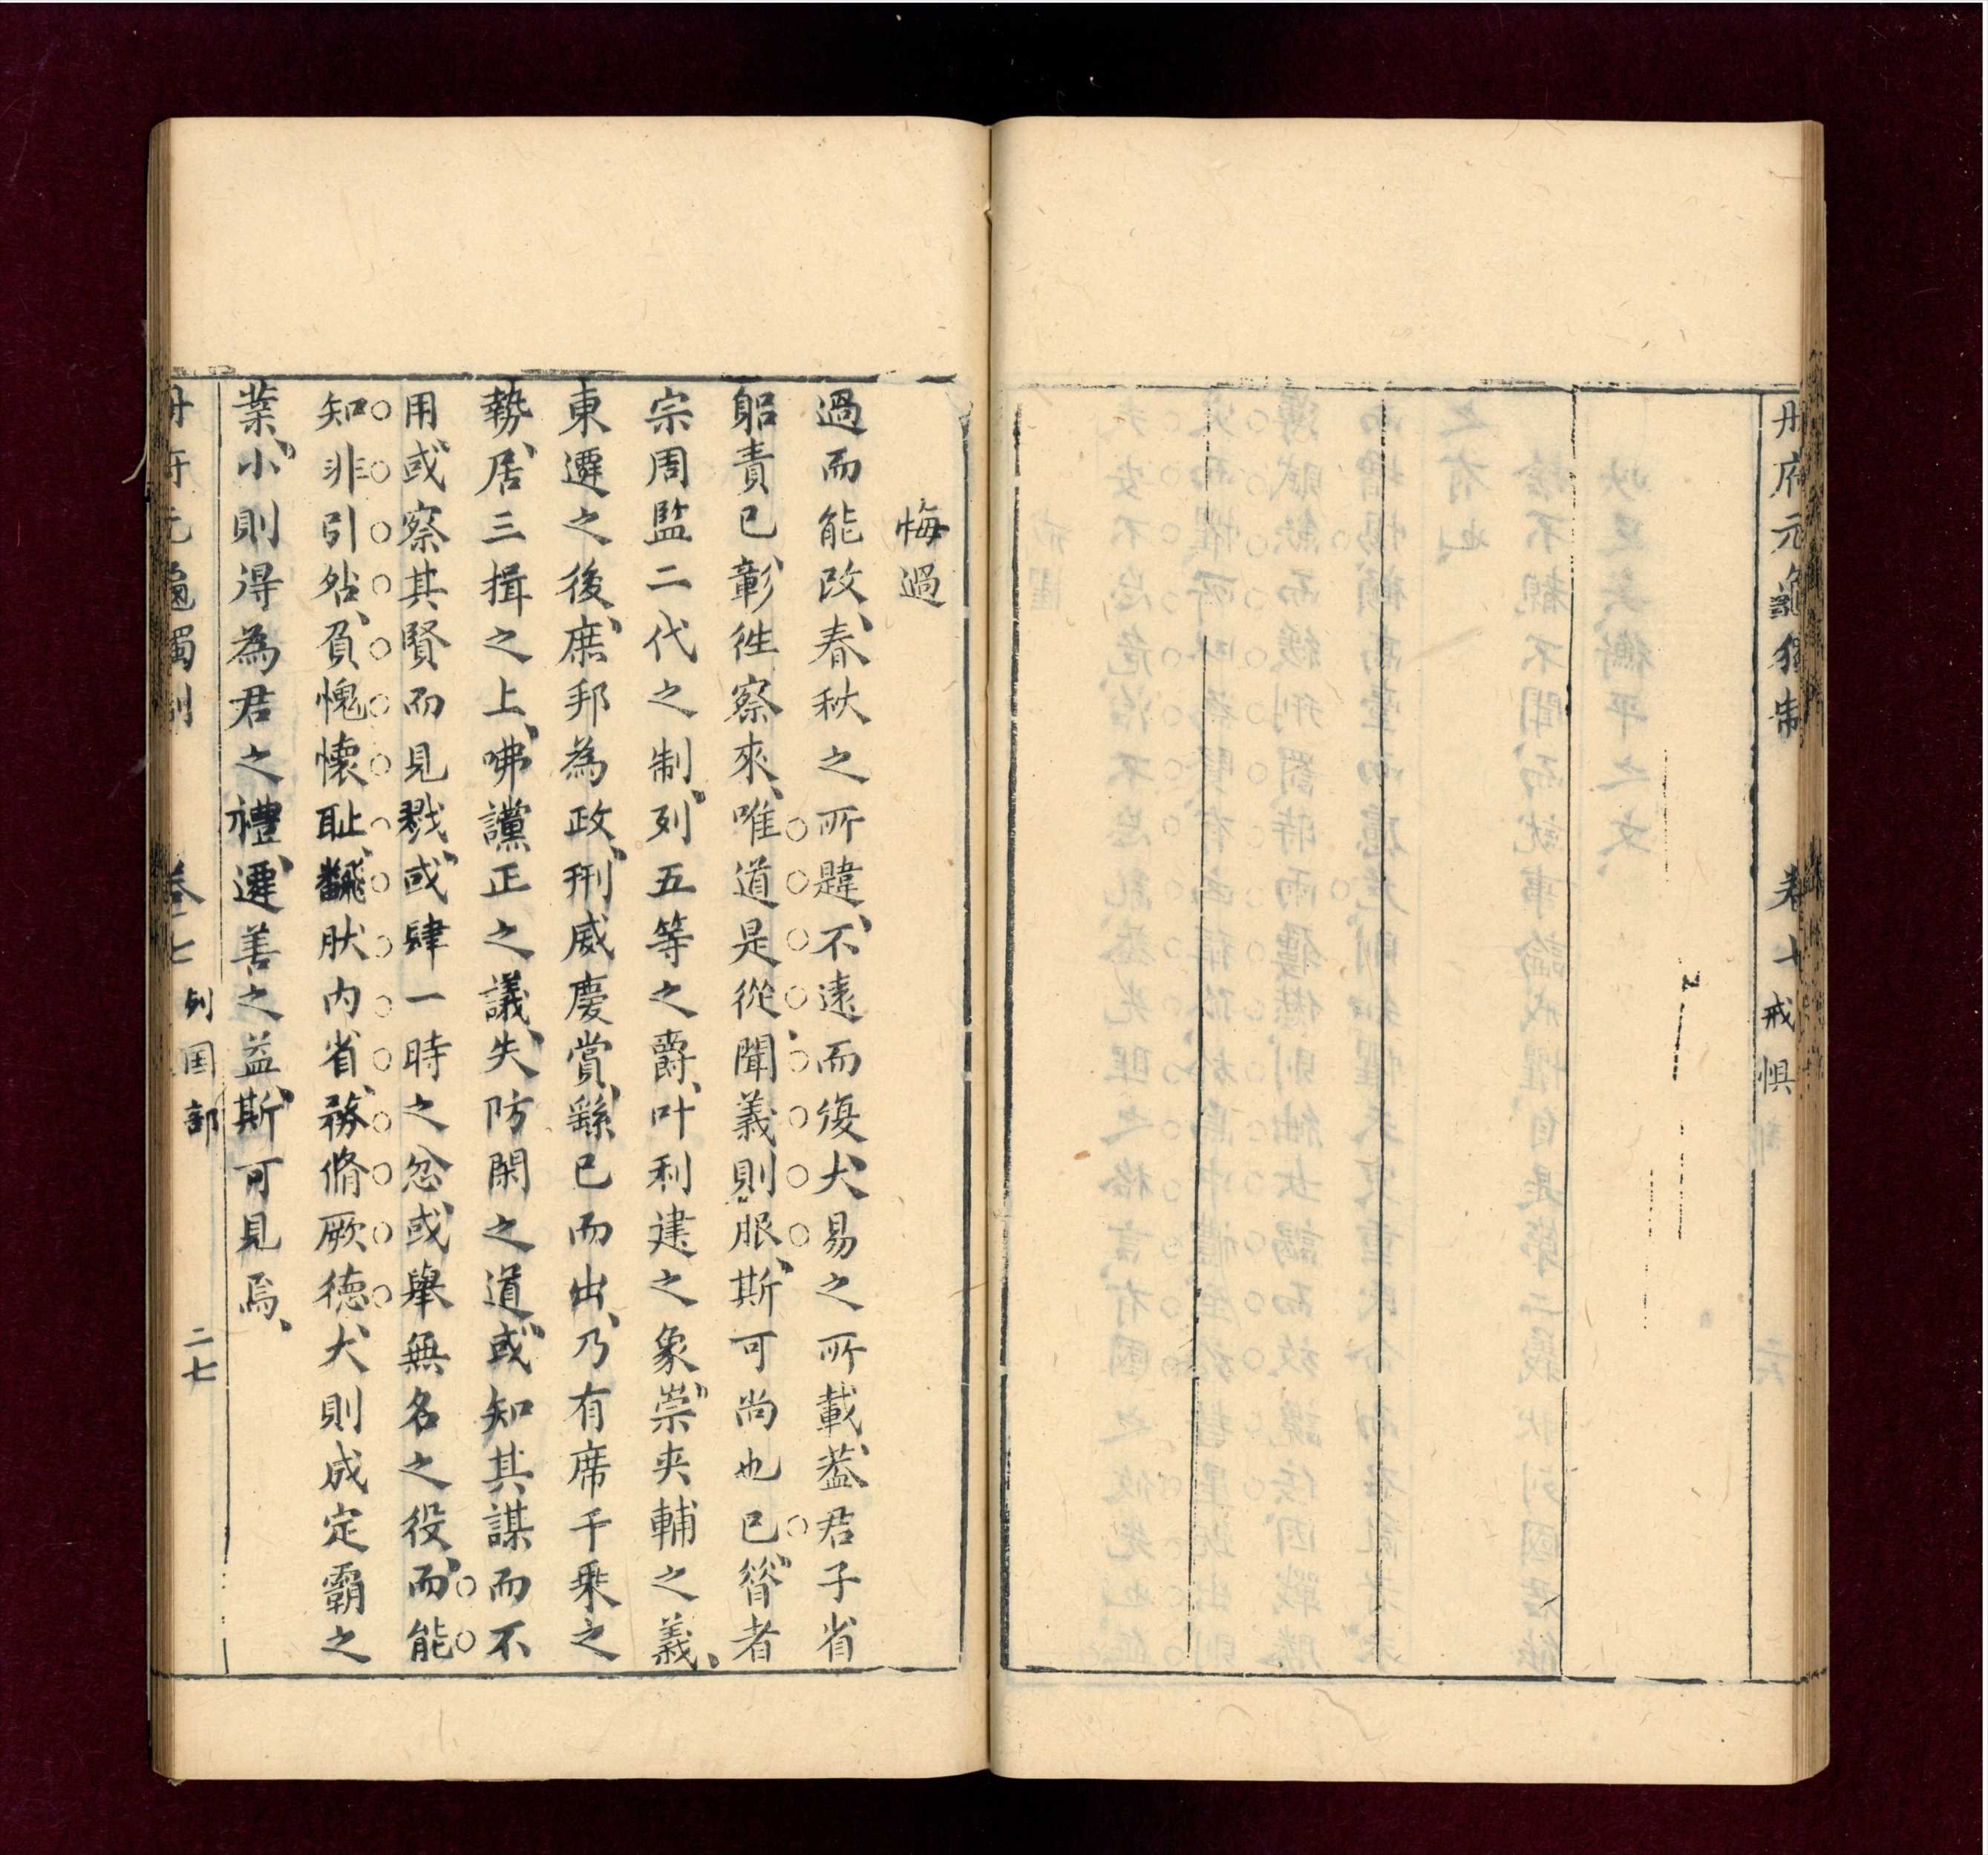 冊府元龜獨制 卷七 戒惧
悔過
過而能改、春秋之所韙、不遠而復大易之所載、蓋君子省
躬責己彰往察來、唯道是從聞義則服、斯可尚也已、昔者
宗周監二代之制、列五等之爵、叶利建之象、崇夾輔之義、
東遷之後、庶邦為政、刑威慶賞、繇己而出、乃有席千乘之
勢、居三揖之上、咈讜正之議、失防閑之道、或知其謀而不
用或察其賢而見戮、或肆一時之忿、或舉無名之役、而能
知非引咎、負愧懷恥、翻然內省、務脩厥德、大則成定霸之
業、小則得為君之禮、遷善之益、斯可見焉、
冊府元龜獨制 卷七 列国部 二七